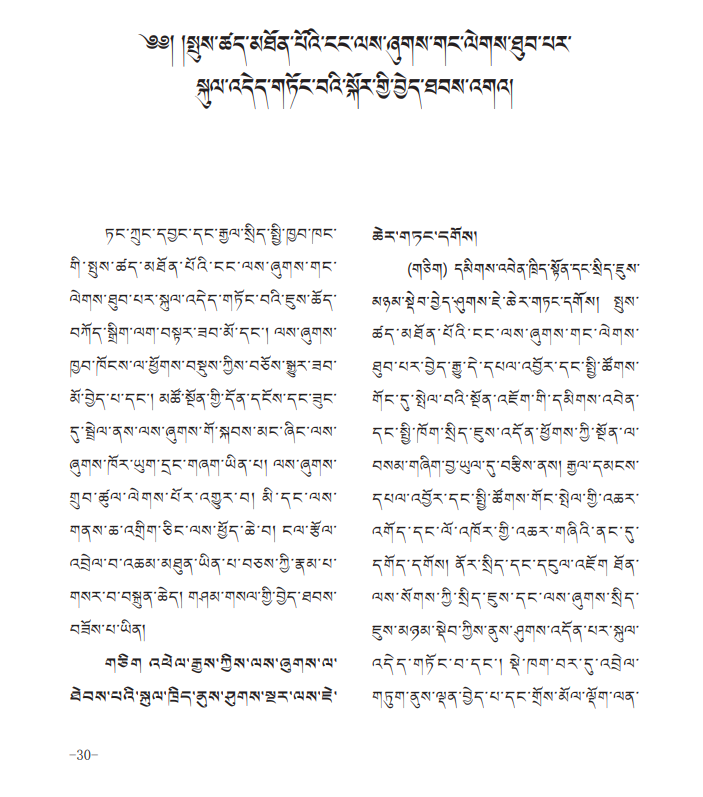 ༄༅། །སྤུས་ཚད་མཐོན་པོའི་ངང་ལས་ཞུགས་གང་ལེགས་ཐུབ་པར་
སྐུལ་འདེད་གཏོང་བའི་སྐོར་གྱི་བྱེད་ཐབས་འགའ།
ཏང་ཀྲུང་དབྱང་དང་རྒྱལ་སྲིད་སྤྱི་ཁྱབ་ཁང་
གི་སྤུས་ཚད་མཐོན་པོའི་ངང་ལས་ཞུགས་གང་
ལེགས་ཐུབ་པར་སྐུལ་འདེད་གཏོང་བའི་ཇུས་ཆོད་
བཀོད་སྒྲིག་ལག་བསྟར་ཟབ་མོ་དང་། ལས་ཞུགས་
ཁྱབ་ཁོངས་ལ་ཕྱོགས་བསྡུས་ཀྱིས་བཅོས་སྒྱུར་ཟབ་
མོ་བྱེད་པ་དང་། མཚོ་སྔོན་གྱི་དོན་དངོས་དང་ཟུང་
དུ་སྦྲེལ་ནས་ལས་ཞུགས་གོ་སྐབས་མང་ཞིང་ལས་
ཞུགས་ཁོར་ཡུག་དྲང་གཞག་ཡིན་པ། ལས་ཞུགས་
གྲུབ་ཚུལ་ལེགས་པོར་འགྱུར་བ། མི་དང་ལས་
གནས་ཆ་འགྲིག་ཅིང་ལས་ཕྱོད་ཆེ་བ། ངལ་རྩོལ་
འབྲེལ་བ་འཆམ་མཐུན་ཡིན་པ་བཅས་ཀྱི་རྣམ་པ་
གསར་བ་བསྐྲུན་ཆེད། གཤམ་གསལ་གྱི་བྱེད་ཐབས་
བཟོས་པ་ཡིན།
གཅིག འཕེལ་རྒྱས་ཀྱིས་ལས་ཞུགས་ལ་
ཐེབས་པའི་སྐུལ་ཁྲིད་ནུས་ཤུགས་སྔར་ལས་ཇེ་
ཆེར་གཏང་དགོས།
(གཅིག) དམིགས་འབེན་ཁྲིད་སྟོན་དང་སྲིད་ཇུས་
མཉམ་སྡེབ་བྱེད་ཤུགས་ཇེ་ཆེར་གཏང་དགོས། སྤུས་
ཚད་མཐོན་པོའི་ངང་ལས་ཞུགས་གང་ལེགས་
ཐུབ་པར་བྱེད་རྒྱུ་དེ་དཔལ་འབྱོར་དང་སྤྱི་ཚོགས་
གོང་དུ་སྤེལ་བའི་སྔོན་འཇོག་གི་དམིགས་འབེན་
དང་སྤྱི་ཁོག་སྲིད་ཇུས་འདོན་ཕྱོགས་ཀྱི་སྔོན་ལ་
བསམ་གཞིག་བྱ་ཡུལ་དུ་བརྩིས་ནས། རྒྱལ་དམངས་
དཔལ་འབྱོར་དང་སྤྱི་ཚོགས་གོང་སྤེལ་གྱི་འཆར་
འགོད་དང་ལོ་འཁོར་གྱི་འཆར་གཞིའི་ནང་དུ་
དགོད་དགོས། ནོར་སྲིད་དང་དངུལ་འཇོག ཐོན་
ལས་སོགས་ཀྱི་སྲིད་ཇུས་དང་ལས་ཞུགས་སྲིད་
ཇུས་མཉམ་སྡེབ་ཀྱིས་ནུས་ཤུགས་འདོན་པར་སྐུལ་
འདེད་གཏོང་བ་དང་། སྡེ་ཁག་བར་དུ་འབྲེལ་
གཏུག་ནུས་ལྡན་བྱེད་པ་དང་གྲོས་མོལ་ལྡོག་ལན་
-30-